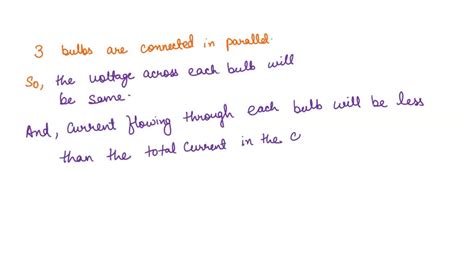 3 bulbs are connected in parallel.
So, the voltage across each bulb will
be same.
And, current flowing through each bulb will be less
than the total current in the c